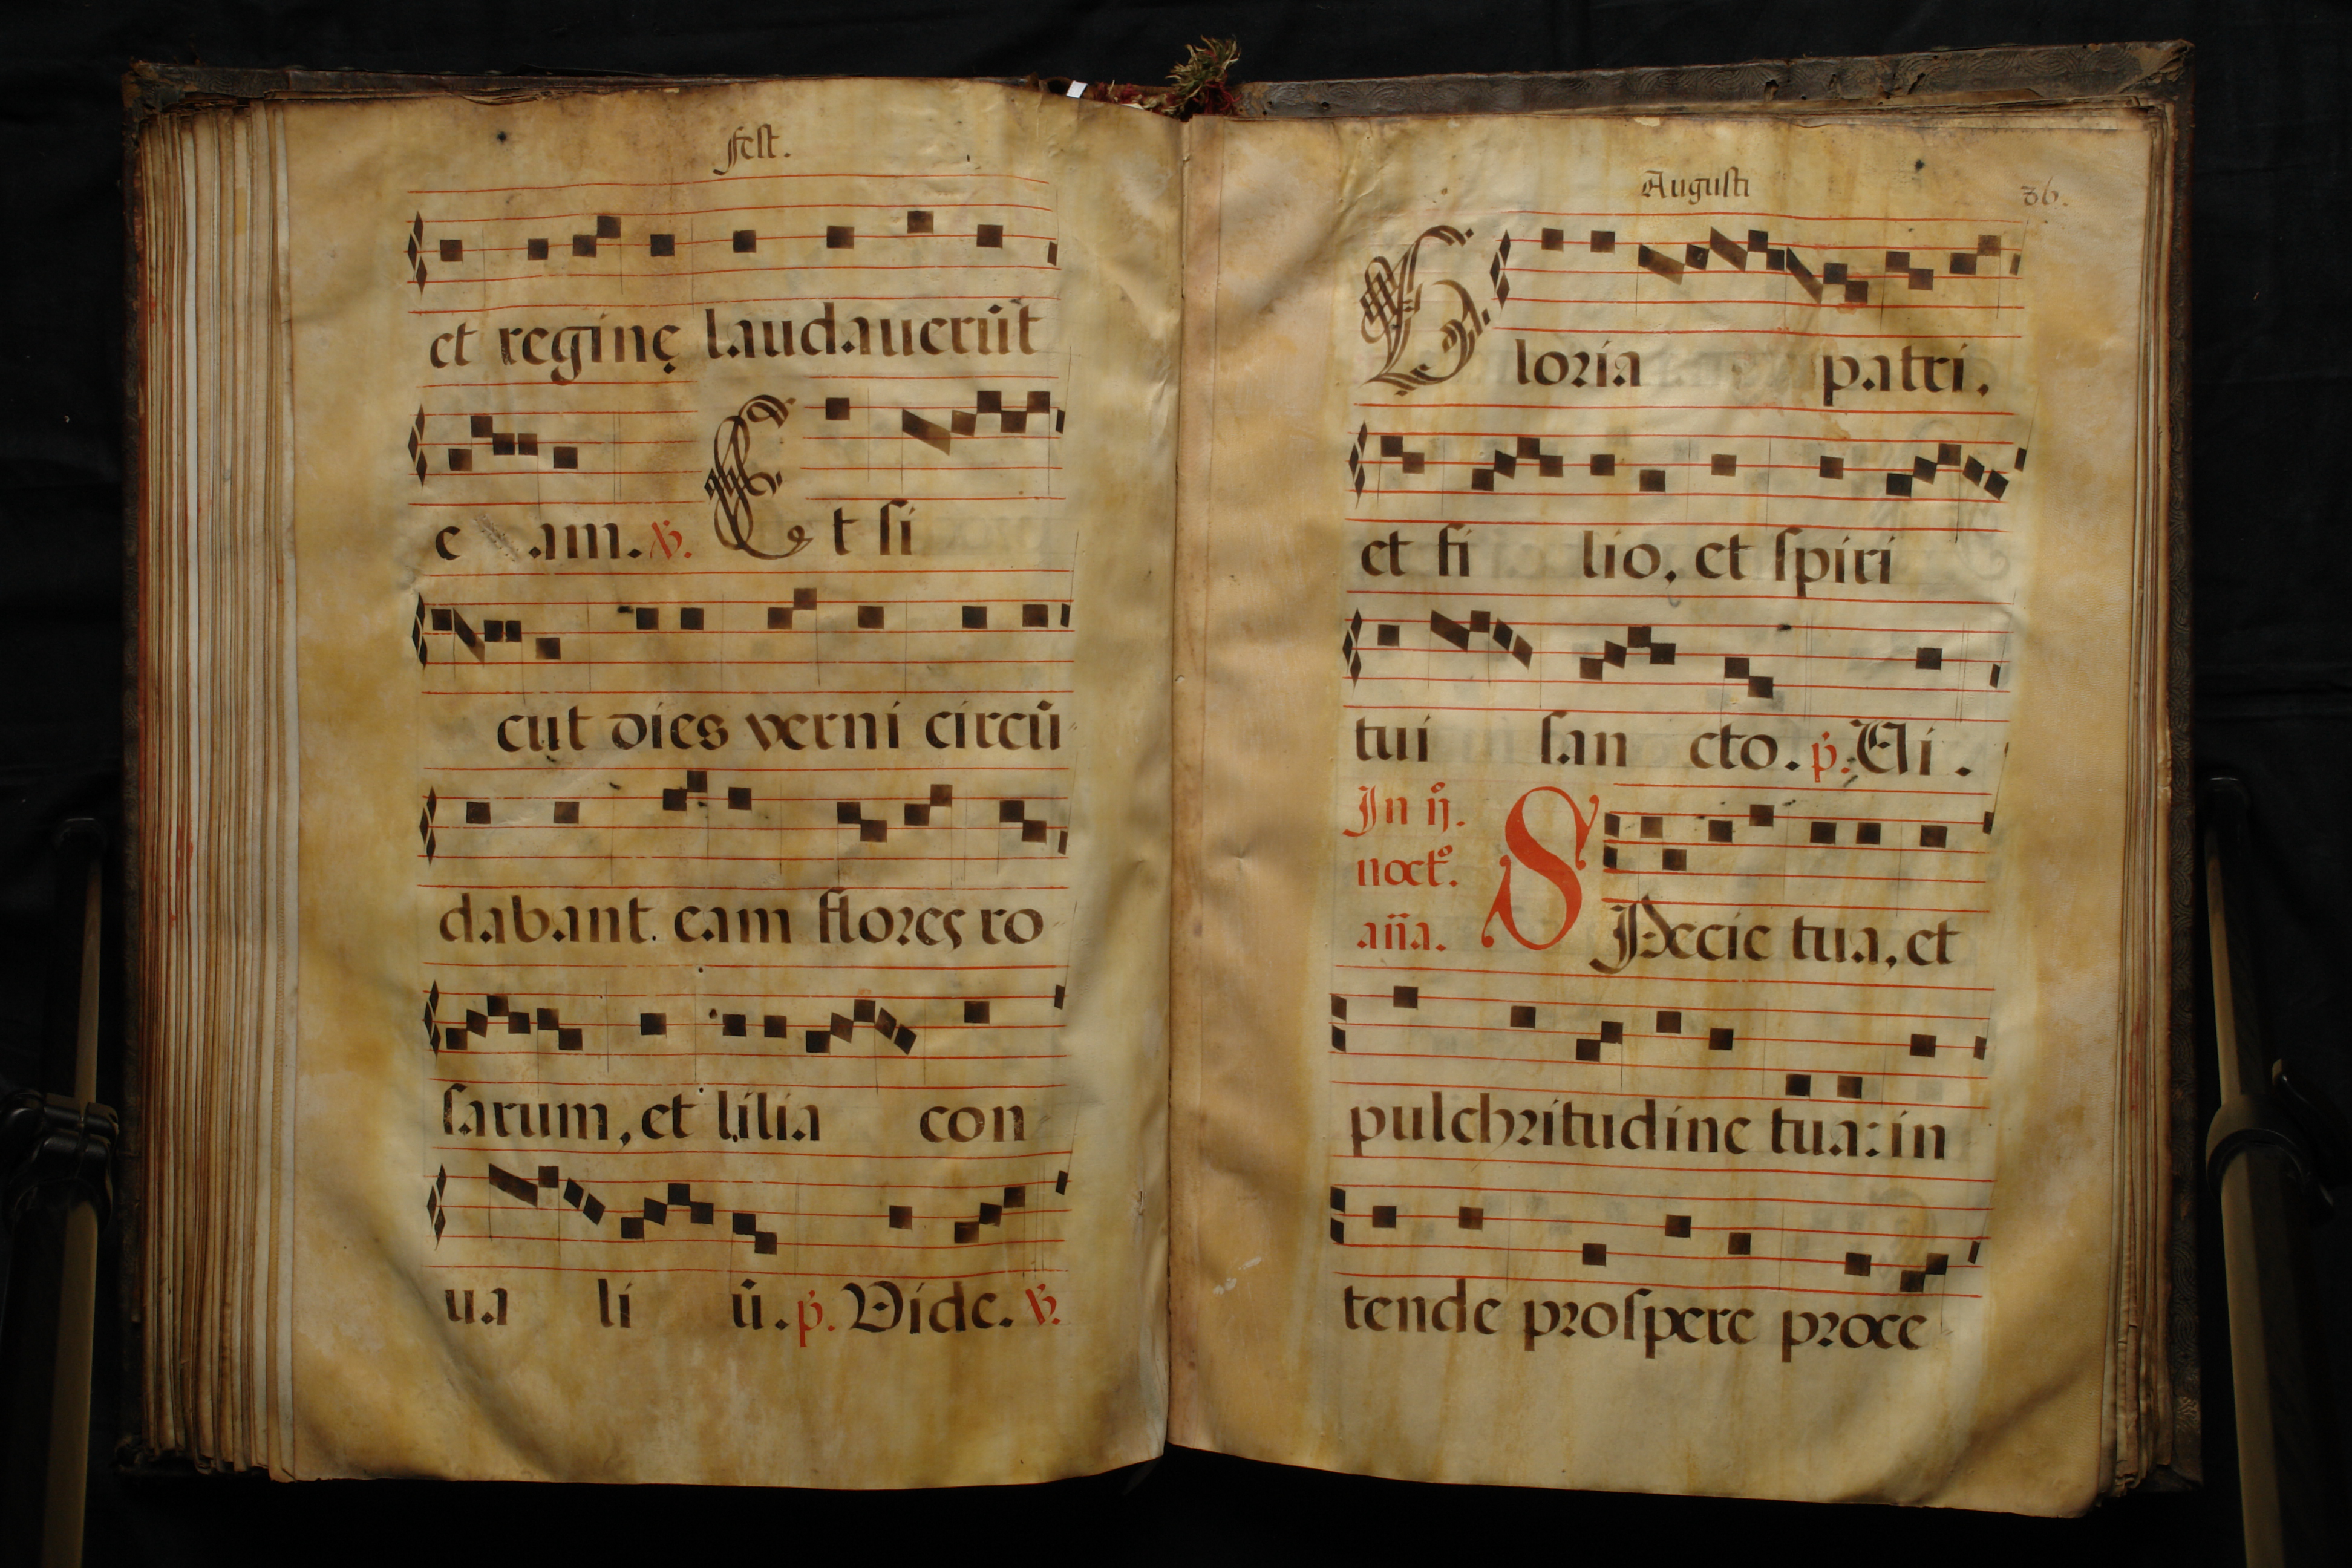 fest.
et reginę laudauerūt
e am. ℣. Et si
cut dies verni circū
dabant eam flores ro
sarum, et lilia con
ua li ū. p̄. Vide. ℣.
Augusti
36.
Gloria patri.
et fi lio, et spiri
tui san cto. p̄. Vi.
In ij.
noct̊.
an̄a.
SPecie tua, et
pulchritudine tua: in
tende prospere proce